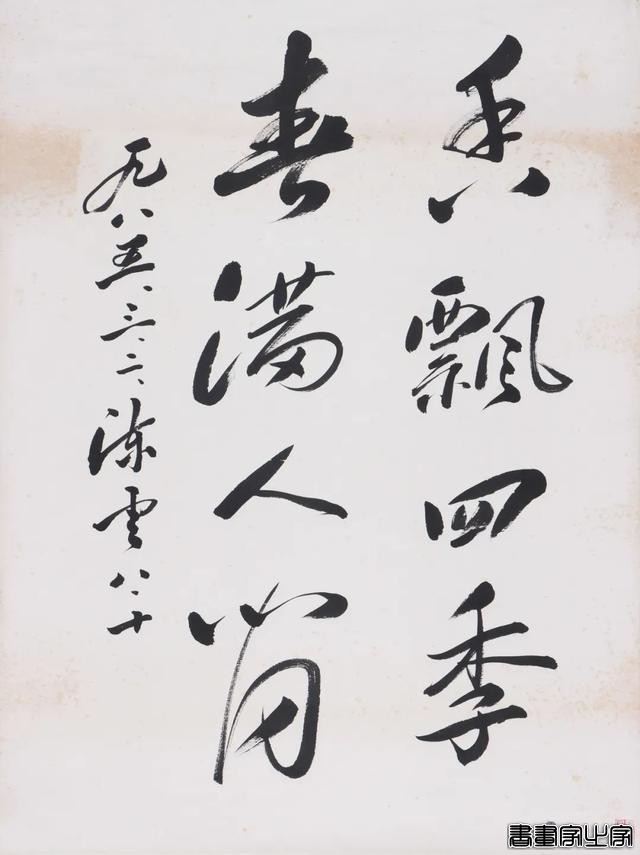 香飘四季
春满人间
一九八五、三、二、陈云八十
書畫家之家